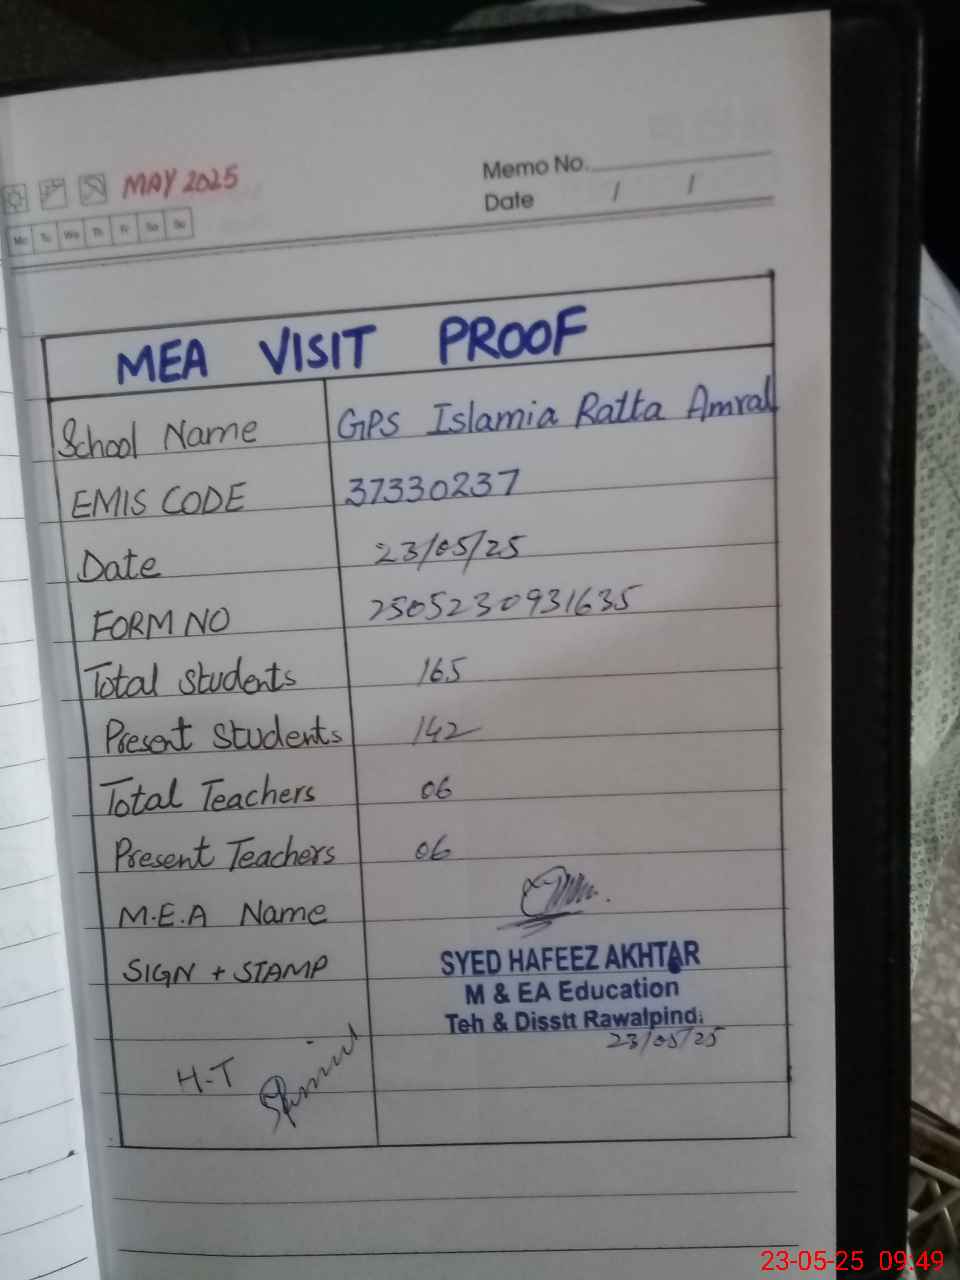 MAY 2025
Memo No.
Date / /
Mo Tu We Th Fr Sa Su
MEA VISIT PROOF
School Name GPS Islamia Ratta Amral
EMIS CODE 37330237
Date 23/05/25
FORM NO 2505230931635
Total Students 165
Present Students 142
Total Teachers 06
Present Teachers 06
M.E.A Name
SIGN + STAMP SYED HAFEEZ AKHTAR
M & EA Education
Teh & Disstt Rawalpindi
23/05/25
H-T
23-05-25 09:49